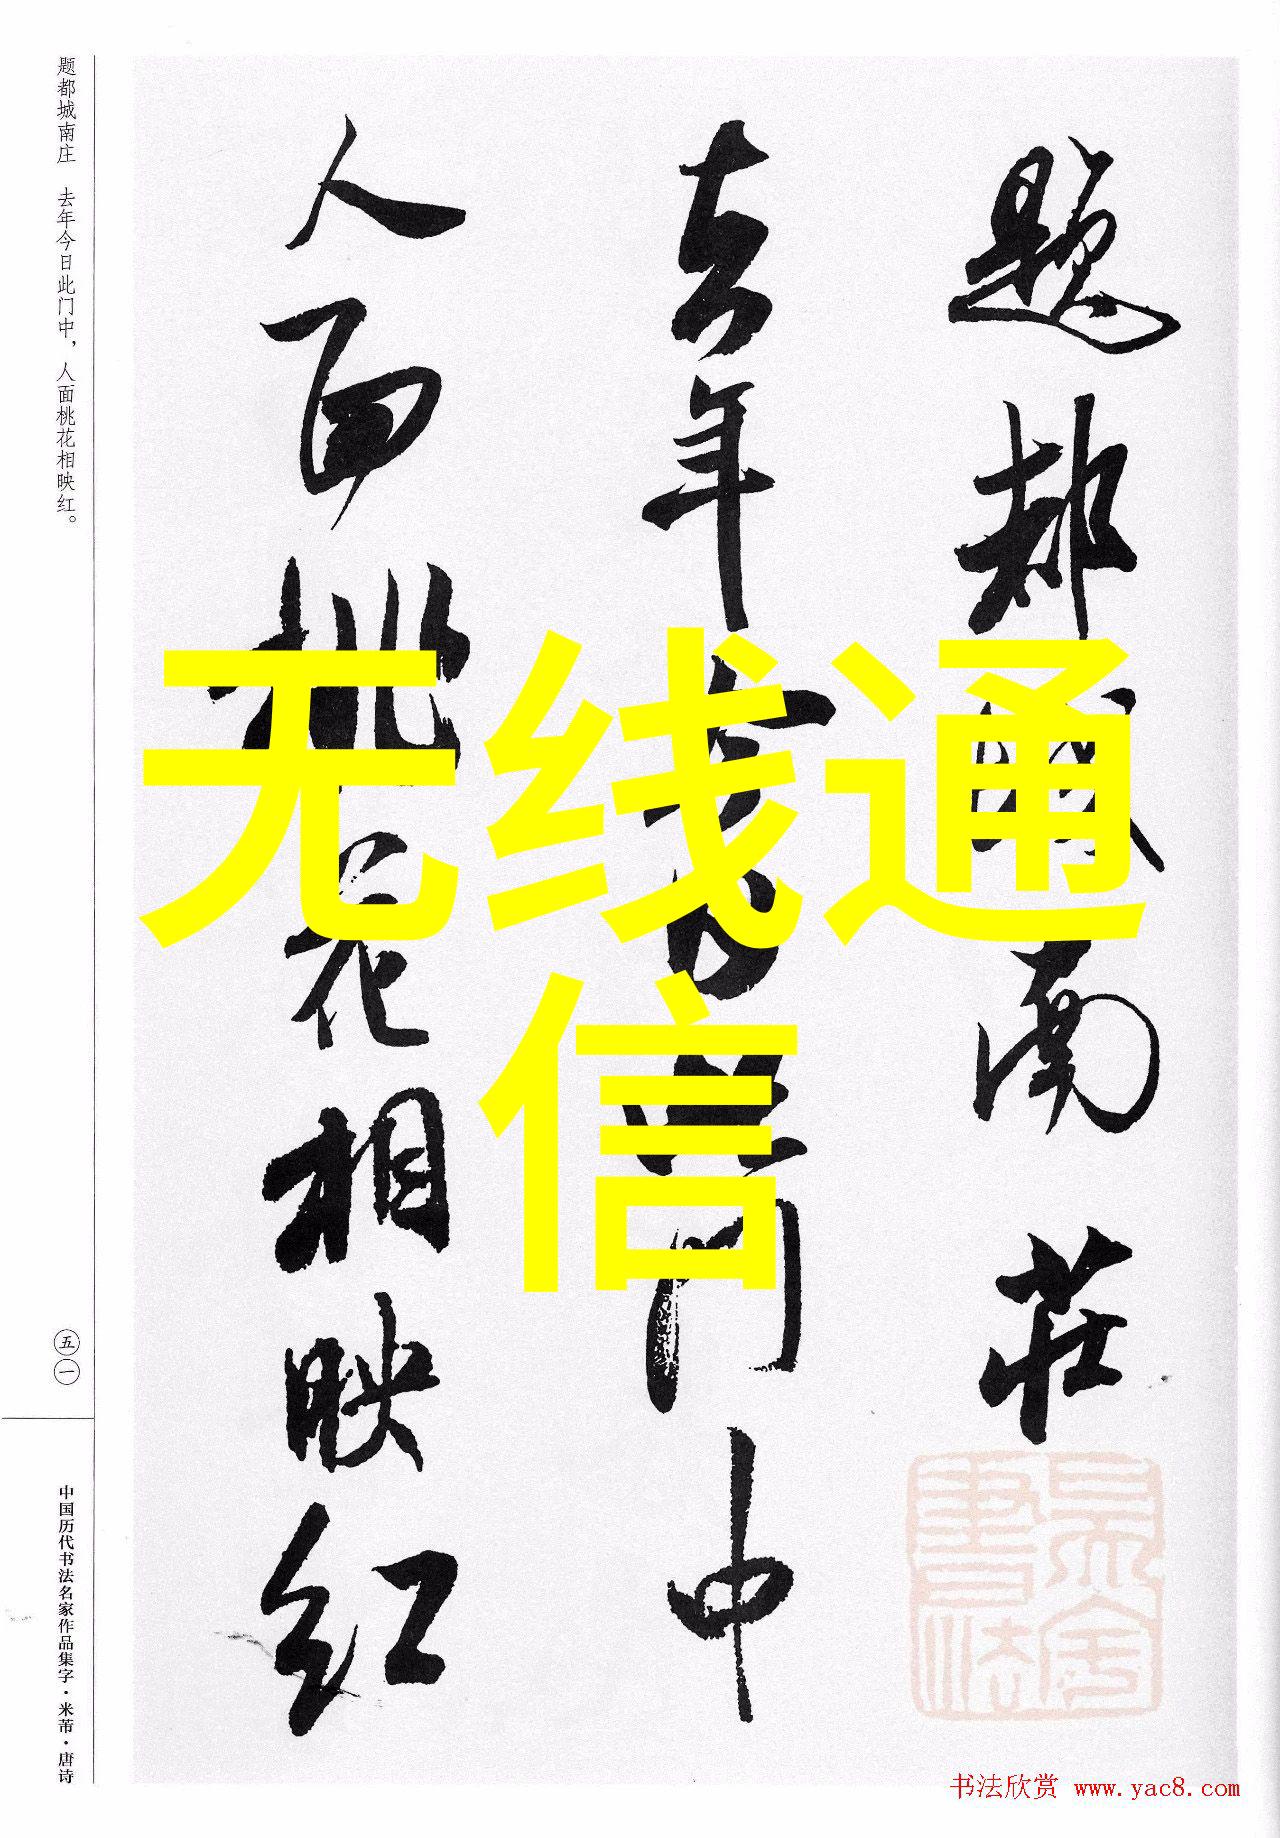 题都城南庄
去年今日此门中
人面桃花相映红
题都城南庄 去年今日此门中，人面桃花相映红。
五一
中国历代书法名家作品集字·米芾·唐诗
无线通
信
書法欣赏 www.yac8.com